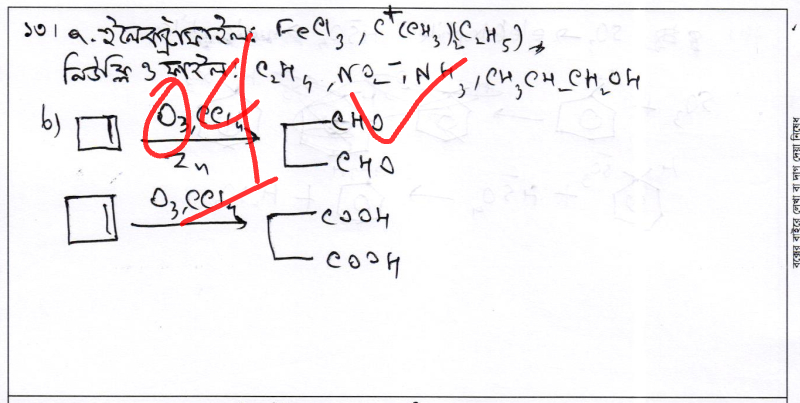 ১৩। a. ইলেকট্রোফাইল: FeCl₃, C⁺(CH₃)₂(C₂H₅)
নিউক্লিওফাইল: C₂H₄, NO₂⁻, NH₃, CH₃CH₂CH₂OH
b) O₃, CCl₄ CHO
Zn CHO
O₃, CCl₄ COOH
COOH
বক্সের বাইরে লেখা বা দাগ দেয়া নিষেধ